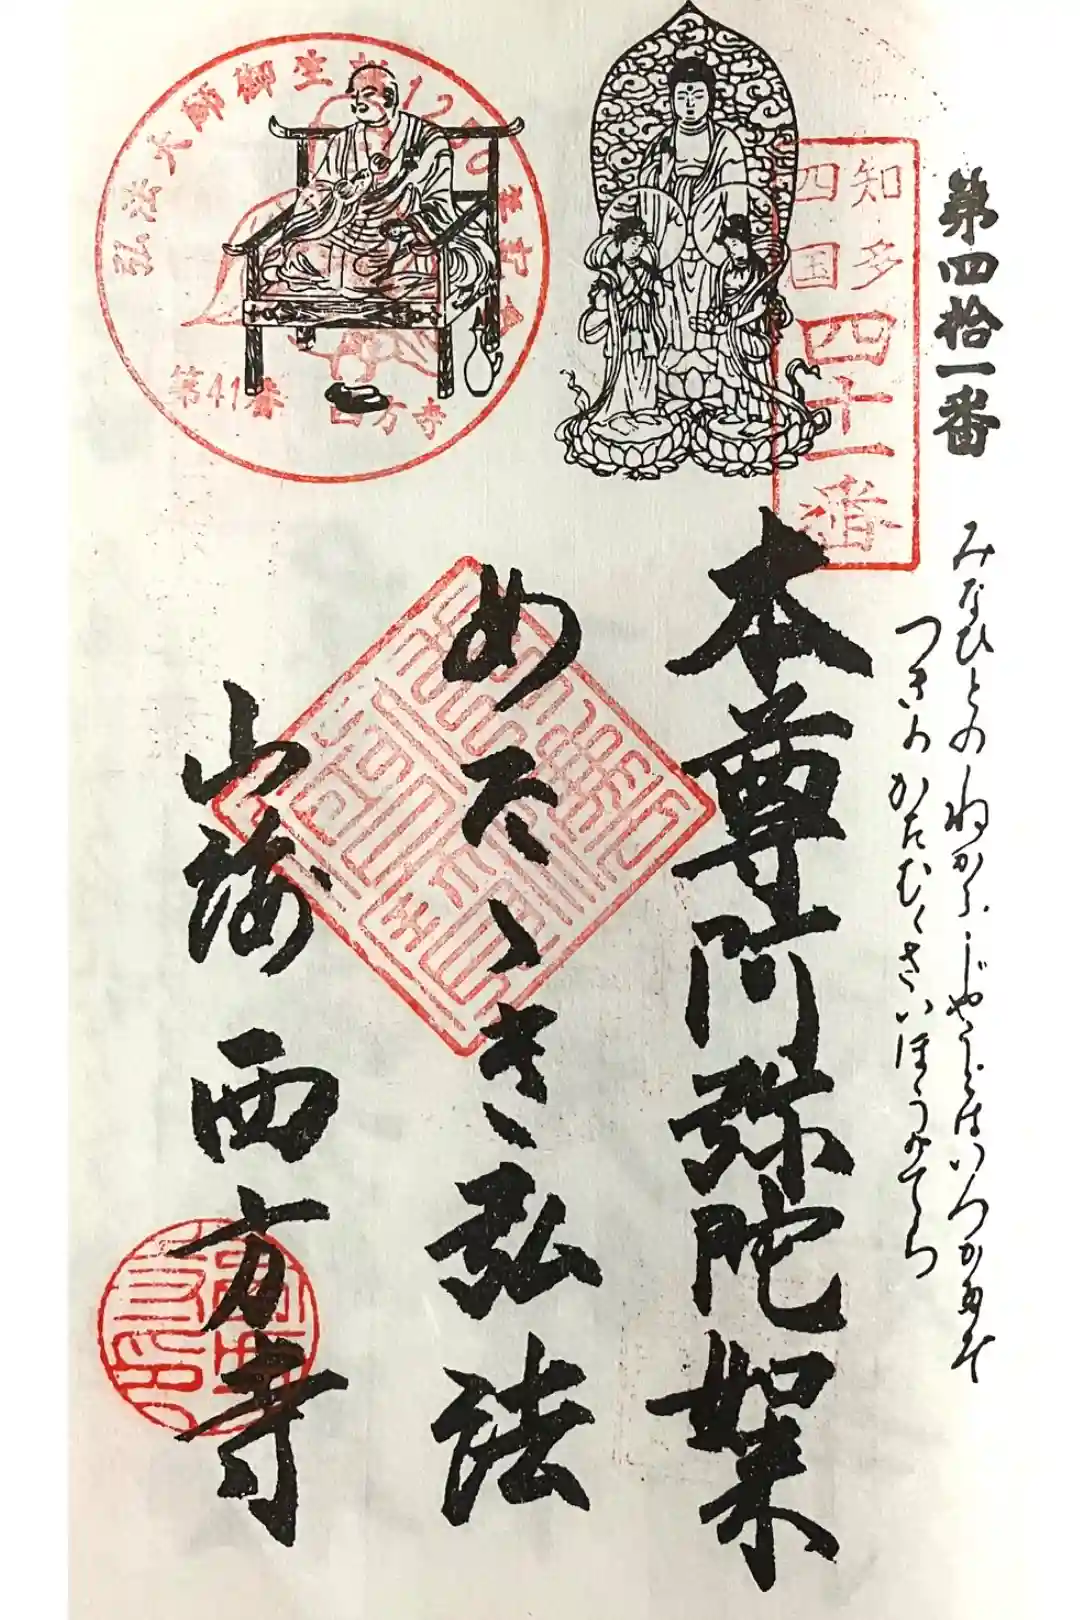 第四拾一番
みなひとのねがふじやうどはいつかみむ
つきのかたむくさいほうのてら
知多
四国
四十一番
本尊阿弥陀如来
めさゝき弘法
山海 西方寺
弘法大師御生誕1250年記念
第41番 西方寺